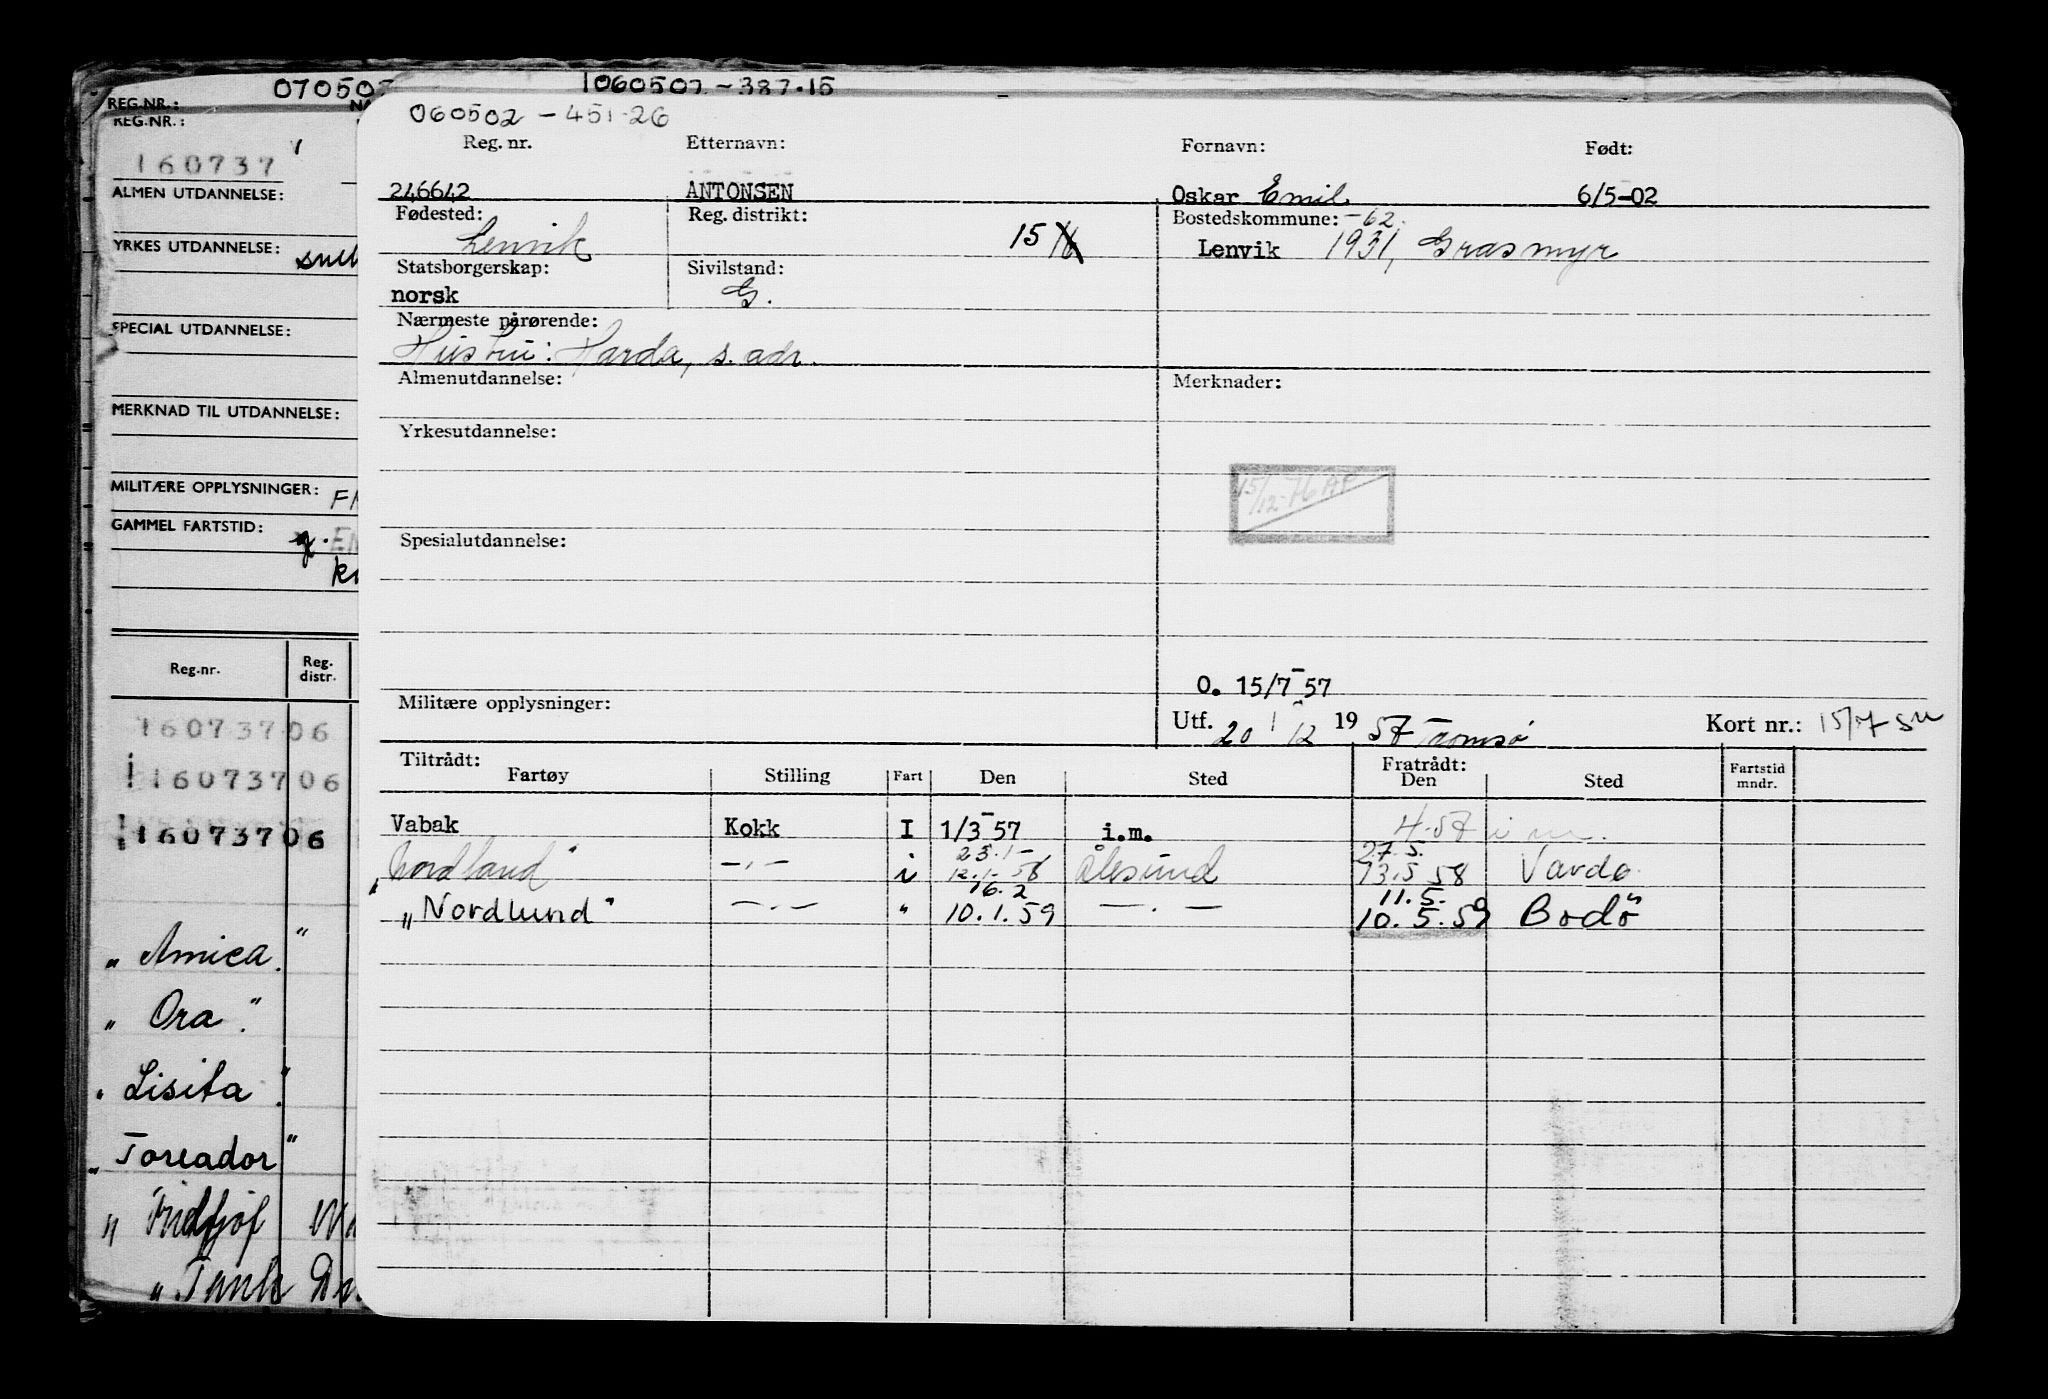 070502
1060507-387.15
REG.NR.:
REG.NR.:
160737
ALMEN UTDANNELSE:
YRKES UTDANNELSE:
SPECIAL UTDANNELSE:
MERKNAD TIL UTDANNELSE:
MILITÆRE OPPLYSNINGER:
GAMMEL FARTSTID:
Reg.nr. Reg. distr.
16073706
16073706
16073706
„Amica"
„Ora"
„Lisita"
„Toreador"
„Fridtjof
„Tank
060502-451-26
Reg. nr. Etternavn: Fornavn: Født:
246642 ANTONSEN Oskar Emil 6/5-02
Fødested: Reg. distrikt: Bostedskommune: -62.
Lenvik 15 16 Lenvik 1931, Grasmyr
Statsborgerskap: Sivilstand:
norsk G.
Nærmeste pårørende:
Hustru: Harda, s. adr.
Almenutdannelse: Merknader:
Yrkesutdannelse:
15/12-76 AP
Spesialutdannelse:
O. 15/7-57
Militære opplysninger:
Utf. 20/12 1957 Tromsø Kort nr.: 15/7
Tiltrådt: Fratrådt:
Fartøy Stilling Fart Den Sted Den Sted Fartstid mndr.
Vabak Kokk I 1/3-57 i.m. 4.57 i m.
23.1- 27.5.
„Nordland" -.- i 12.1-58 Ålesund 13.5.58 Vardø
16.2 11.5.
„Nordlund" -.- " 10.1.59 -.- 10.5.59 Bodö